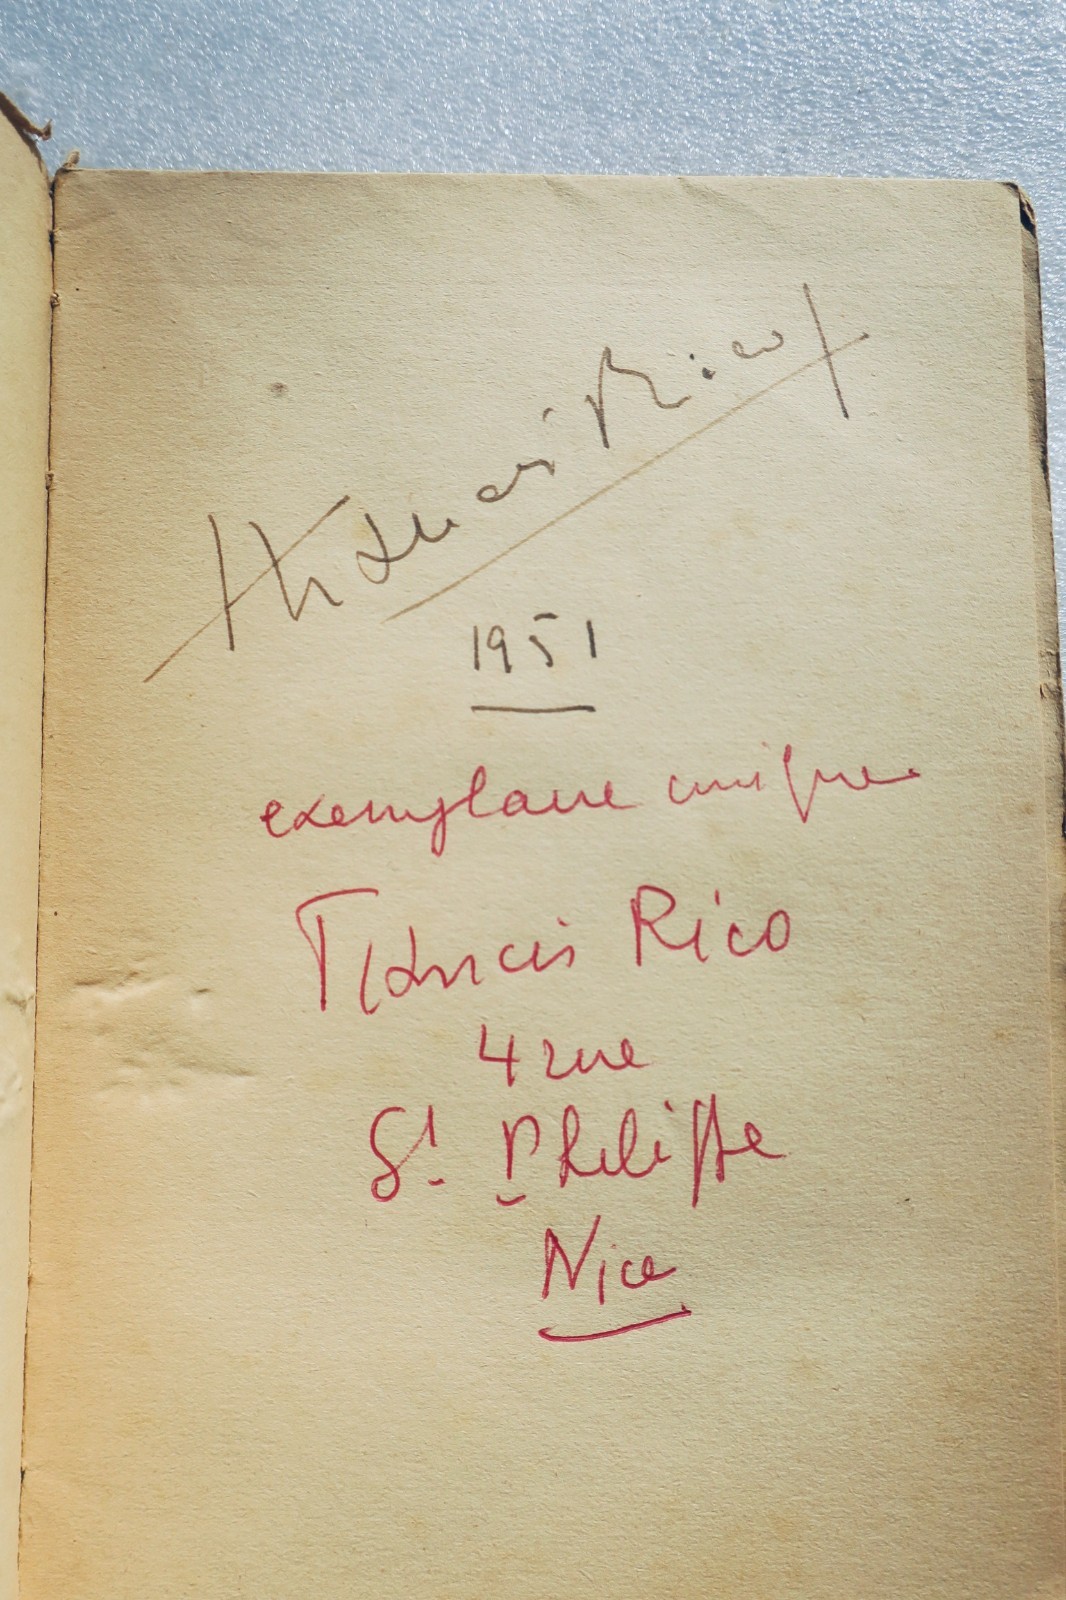 Francis Rico
1951
exemplaire unique
Francis Rico
4 rue
St Philippe
Nice